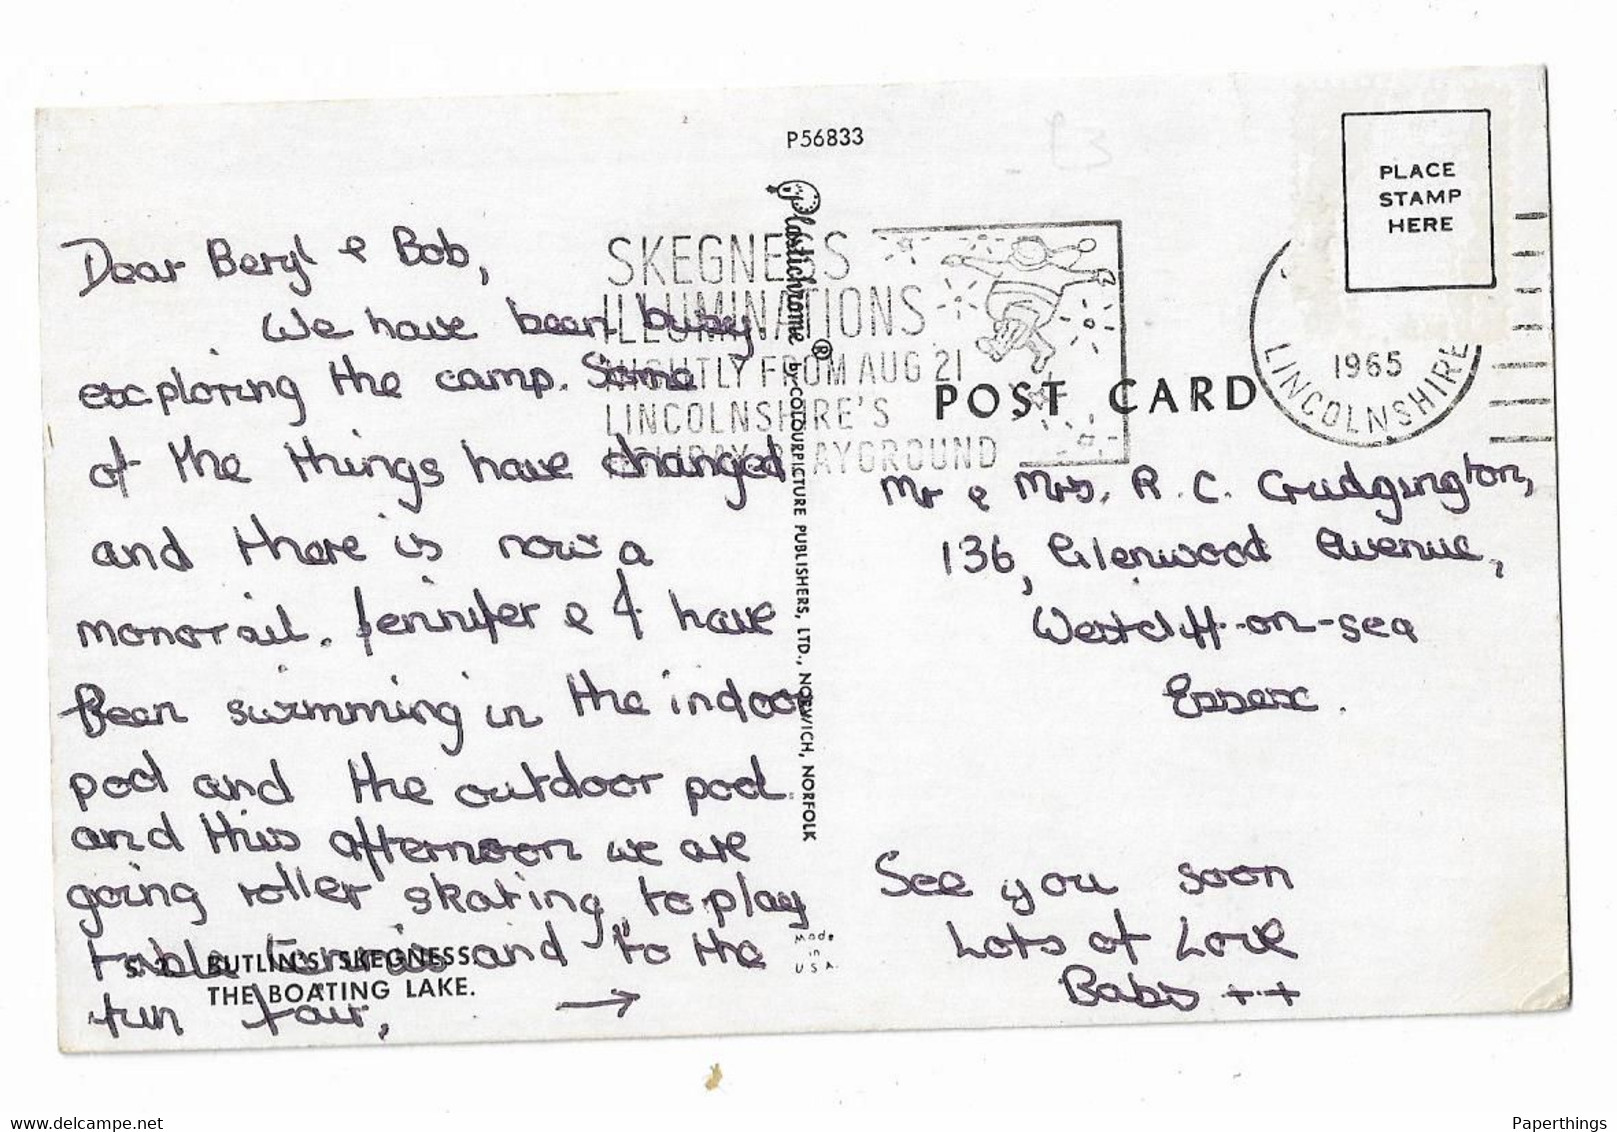 P56833
PLACE
STAMP
HERE
Dear Beryl & Bob,
We have been busy
exploring the camp. Some
of the things have changed
and there is now a
monorail. Jennifer & I have
Been swimming in the indoor
pool and the outdoor pool.
and this afternoon we are
going roller skating, to play
table tennis and to the
fun fair, →
S. 2. BUTLIN'S SKEGNESS
THE BOATING LAKE.
Plastichrome ® by COLOURPICTURE PUBLISHERS, LTD., NORWICH, NORFOLK
Made
in
U S A.
SKEGNESS
ILLUMINATIONS
NIGHTLY FROM AUG 21
LINCOLNSHIRE'S
HOLIDAY PLAYGROUND
1965
LINCOLNSHIRE
POST CARD
Mr & Mrs. R. C. Gudgington,
136, Glenwood Avenue,
Westcliff-on-sea
Essex.
See you soon
Lots of Love
Babs ++
www.delcampe.net
Paperthings